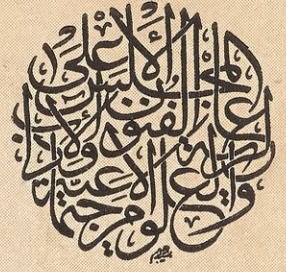 المجلس الأعلى لرعاية الفنون والآداب والعلوم الاجتماعية